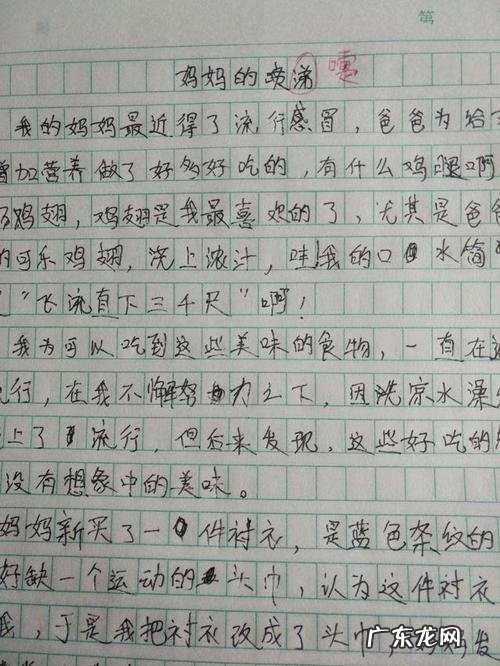 第
妈妈的喷涕 嚏
我的妈妈最近得了流行感冒，爸爸为给
增加营养做了好多好吃的，有什么鸡腿啊
鸡翅，鸡翅是我最喜欢的了，尤其是爸爸
的可乐鸡翅，浇上浓汁，哇！我的口水简
“飞流直下三千尺”啊！
我为可以吃到这些美味的食物，一直在
流行，在我不懈努力之下，因洗凉水澡
上了流行，但后来发现，这些好吃的
没有想象中的美味。
妈妈新买了一件衬衣，是蓝色条纹的
好缺一个运动的头巾，认为这件衬衣
我，于是我把衬衣改成了头巾，妈妈发
广东龙网